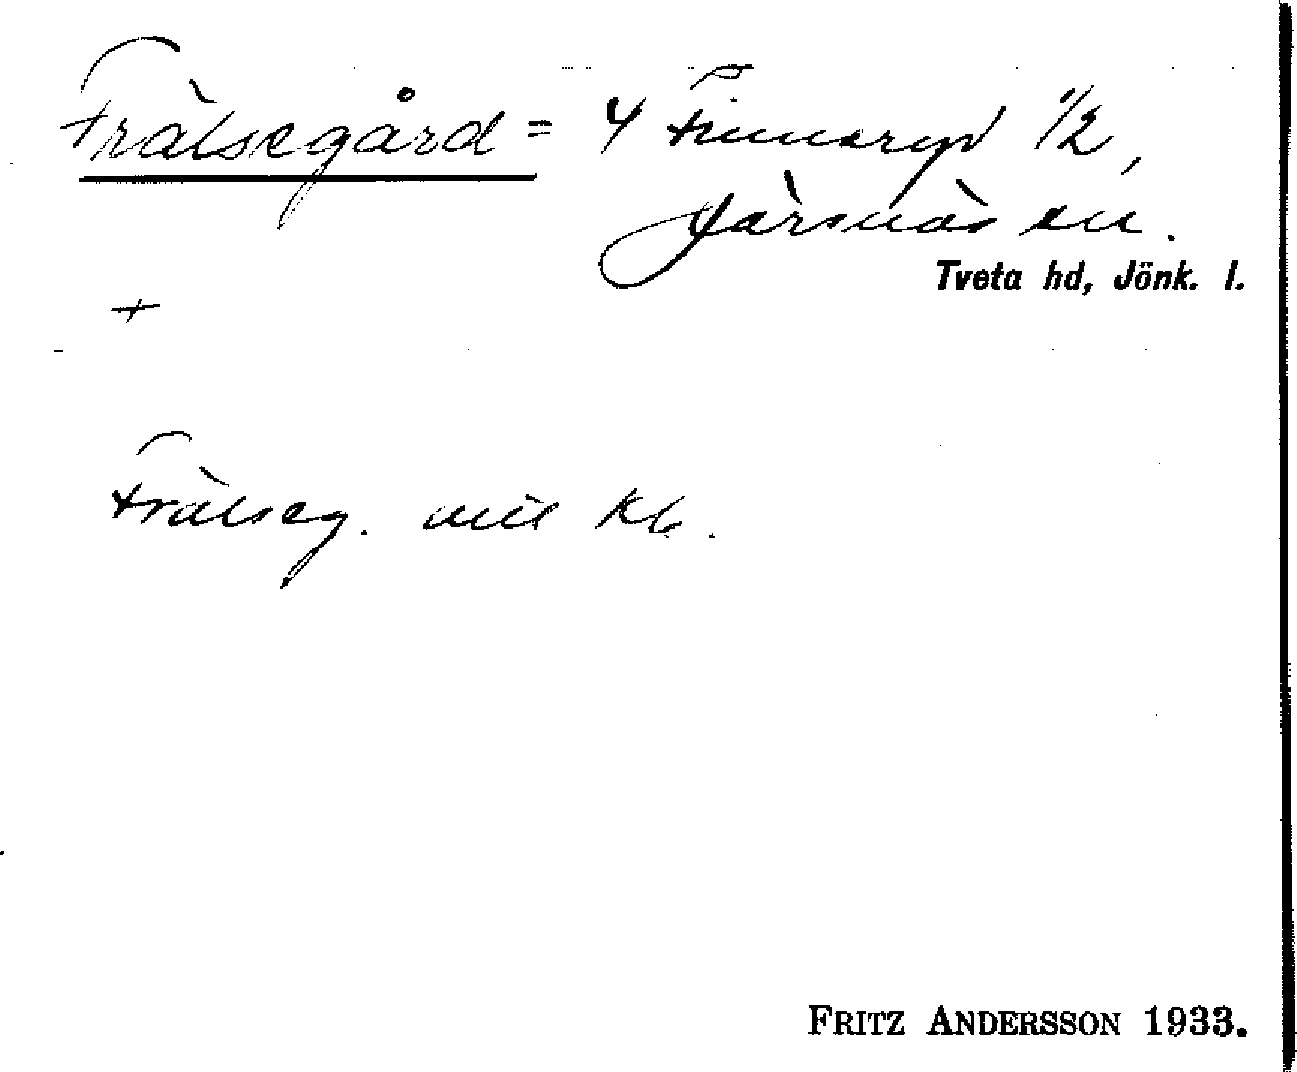 Frälsegård = 4 Finneryd 1/2,
Järsnäs sn.
Tveta hd, Jönk. l.
+
Frälseg. Kb.
FRITZ ANDERSSON 1933.